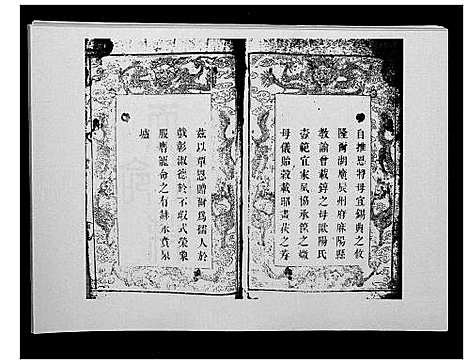 自推恩將母宜錫典之攸
隆爾湖廣辰州府麻陽縣
教諭曾載錞之母歐陽氏
壼範宜家夙協承筐之媺
母儀貽穀載耶畫荻之芳
茲以覃恩贈爾為孺人於
戲彰淑德於不瑕式榮象
服膺寵命之有赫永賁泉
壚